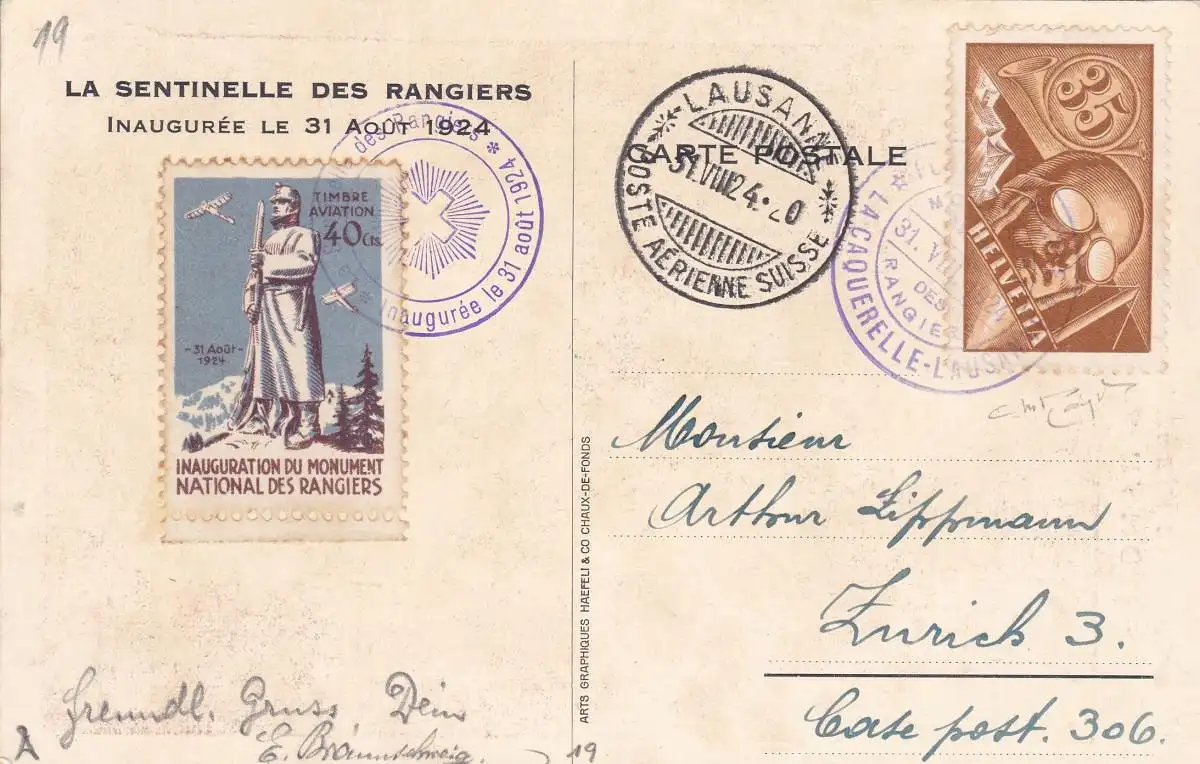 19
LA SENTINELLE DES RANGIERS
INAUGURÉE LE 31 AOÛT 1924
des Rangiers * Inaugurée le 31 août 1924 *
TIMBRE
AVIATION
40 Cts.
-31 Août-
1924
INAUGURATION DU MONUMENT
NATIONAL DES RANGIERS
Freundl. Gruss, Dein
E. Braunschweig.
A
19
ARTS GRAPHIQUES HAEFELI & CO CHAUX-DE-FONDS
CARTE POSTALE
LAUSANNE
31.VIII.24.-20
POSTE AÉRIENNE SUISSE
35
HELVETIA
LA CAQUERELLE-LAUSA
31. VIII
DES
RANGIE
Monsieur
Arthur Lippmann
Zurich 3.
Case post. 306.